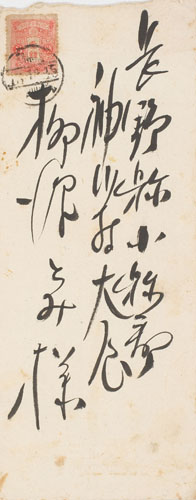 長野縣小縣郡
神川村大屋
柳沢とみ様